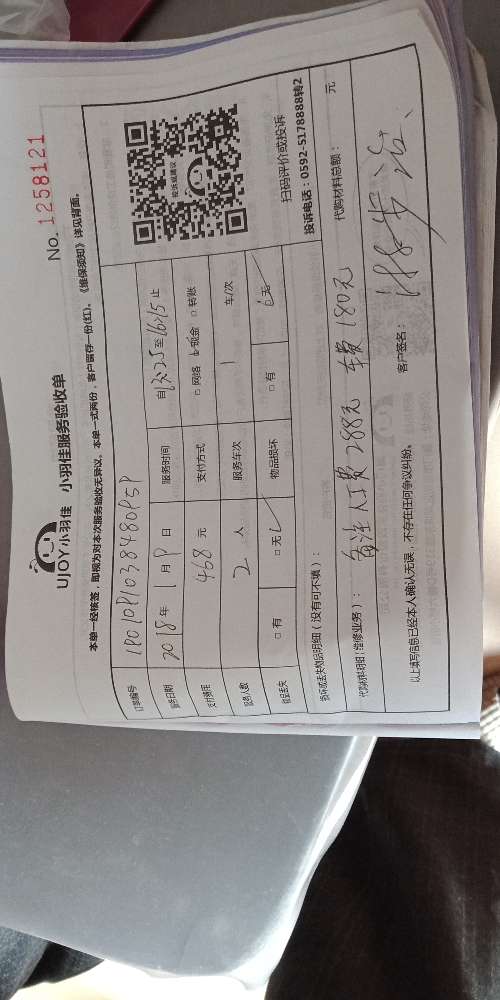 UJOY小羽佳 小羽佳服务验收单
No. 1258121
本单一经核签,即视为对本次服务验收无异议。本单一式两份,客户留存一份(红)。《维保须知》详见背面。
订单编号
服务日期 2018年 1月 9日 服务时间 自13:25至16:15止
支付费用 468 元 支付方式 □网络 □现金 □转账
服务人数 2 人 服务车次 1 车/次
物品丢失 □有 □无 物品损坏 □有 □无
投诉或建议
扫码评价或投诉
投诉电话:0592-5178888转2
损坏或丢失物品明细(没有可不填):
代购材料明细(维修业务): 备注人工费288元 车费180元 代购材料总额: 元
以上填写信息已经本人确认无误,不存在任何争议纠纷。 客户签名: